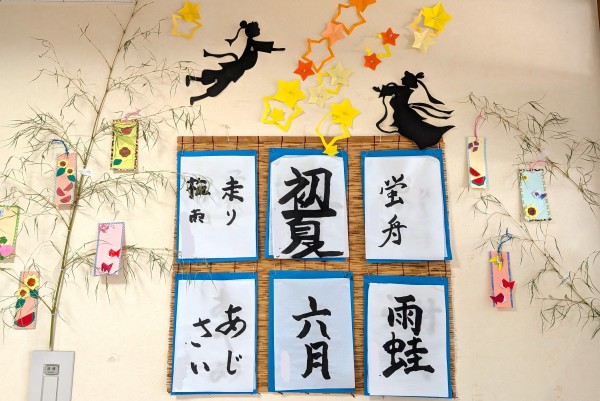 蛍舟
初夏
走り
梅雨
雨蛙
六月
あじ
さい